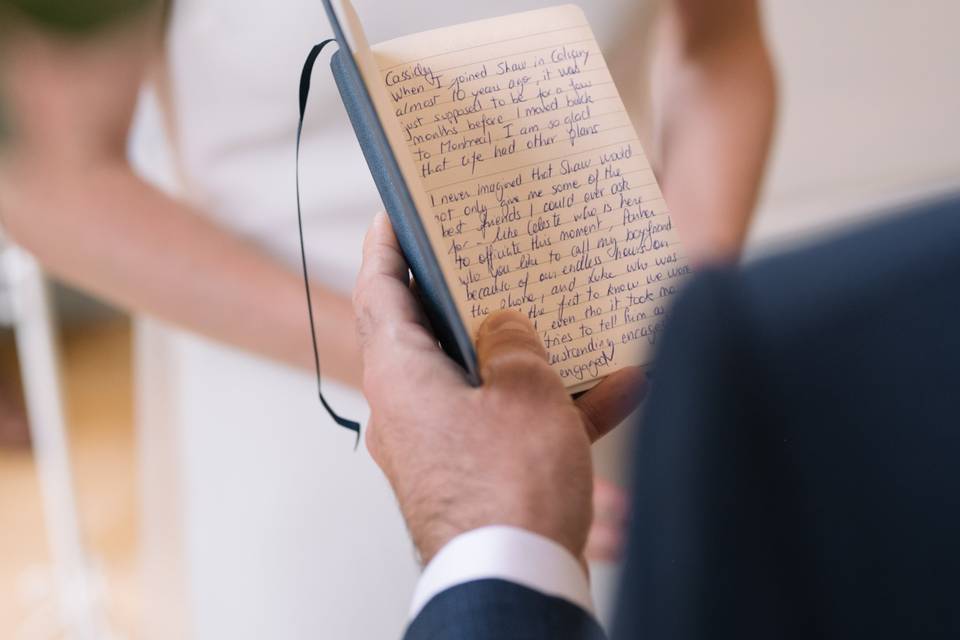 Cassidy,
When I joined Shaw in Calgary
almost 10 years ago, it was
just supposed to be for a few
months before I moved back
to Montreal, I am so glad
that life had other plans
I never imagined that Shaw would
not only give me some of the
best friends I could ever ask
for, like Celeste who is here
to officiate this moment, Parker
who you like to call my boyfriend
because of our endless hours on
the phone, and Luke who was
the first to know we were
even tho it took me
tries to tell him as
engaged!